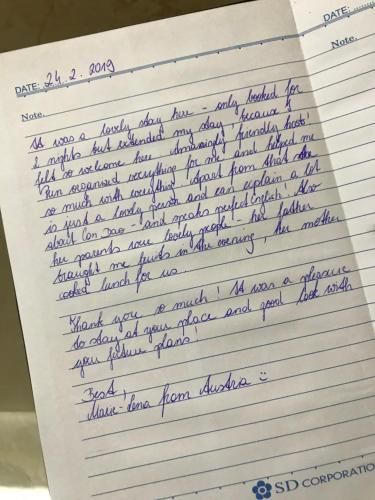 DATE:
Note.
DATE: 24. 2. 2019
Note.
It was a lovely stay here - only booked for
2 nights but extended my stay, because I
felt so welcome here. Amazingly friendly host!
Pun organised everything for me and helped me
so much with everything. Apart from that she
is just a lovely person and can explain a lot
about Con Dao - and speaks perfect English! Also
her parents were lovely people - her father
braught me fruits in the evening, her mother
cooked lunch for us.
Thank you so much! It was a pleasure
to stay at your place and good luck with
your future plans!
Best,
Marie-Lena from Austria :)
SD CORPORATIO